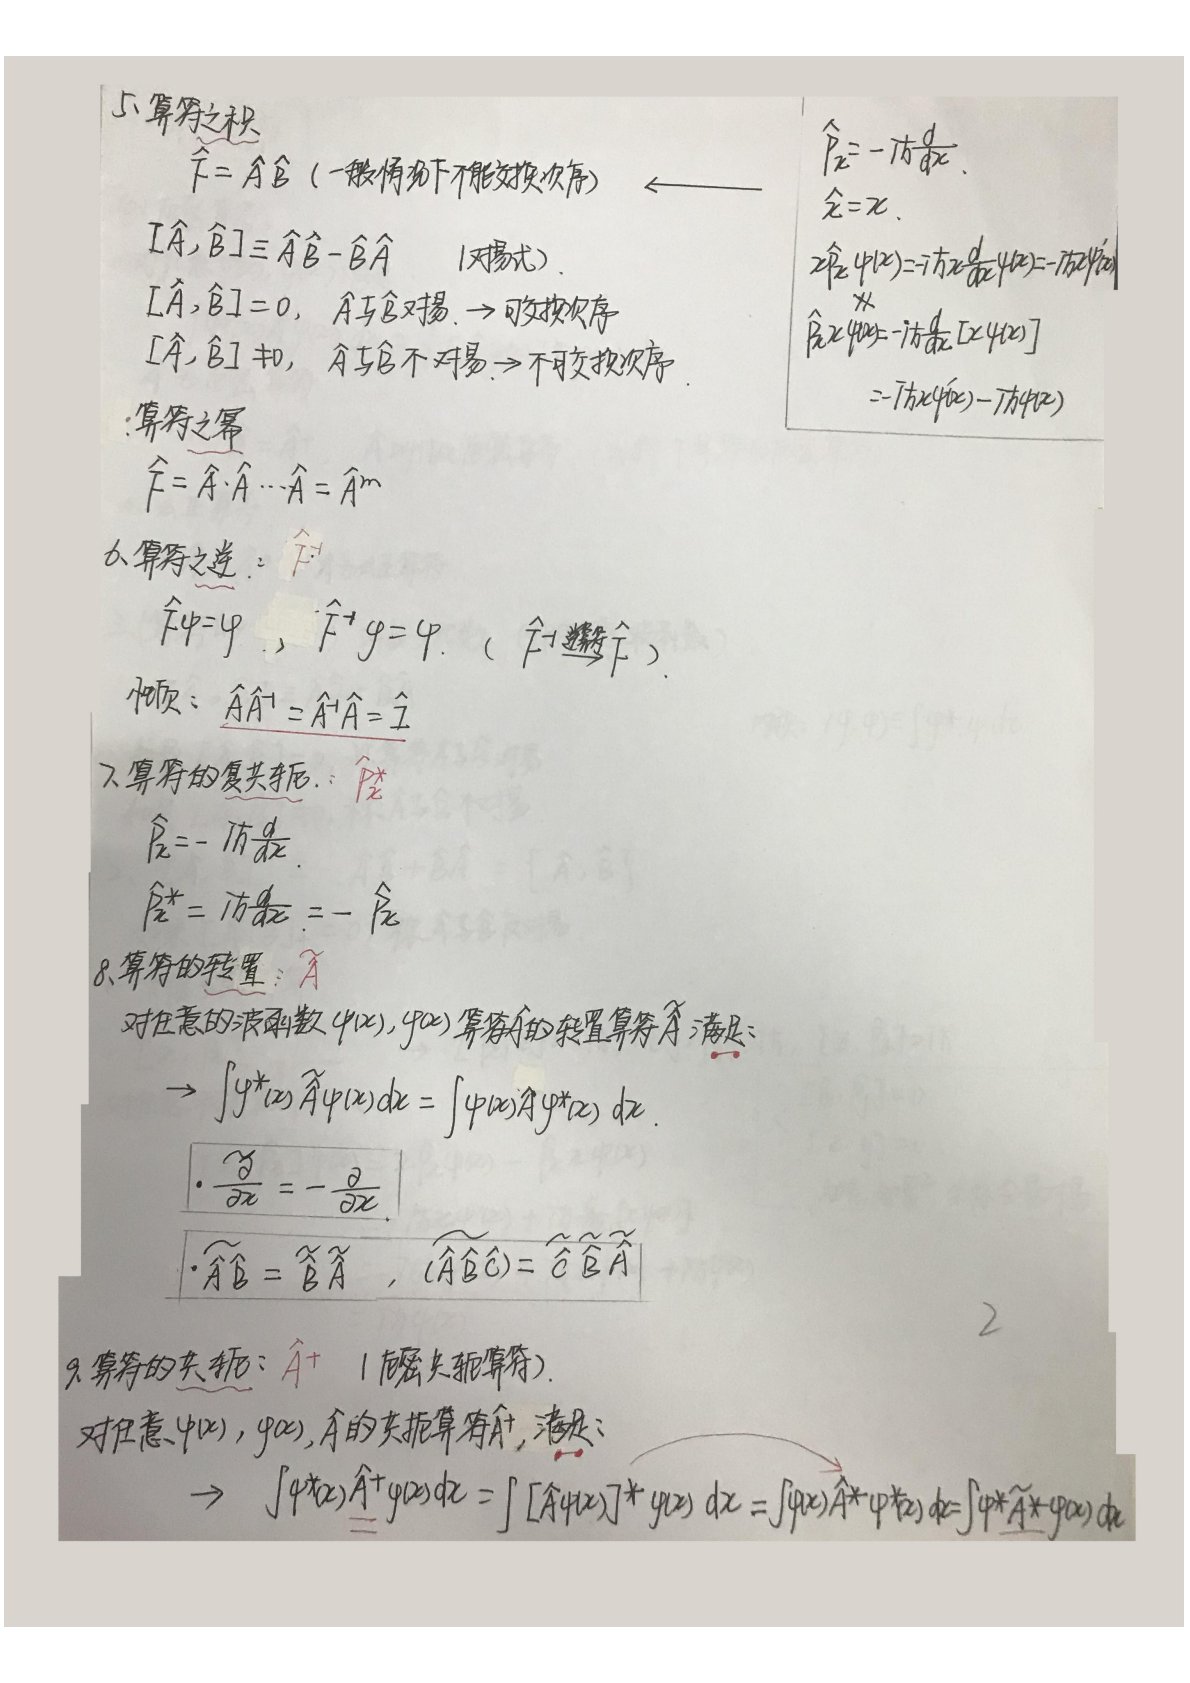 5、算符之积
F̂ = ÂB̂ (一般情况下不能交换次序) ←
[Â, B̂] ≡ ÂB̂ - B̂Â (对易式).
[Â, B̂] = 0, Â与B̂对易. → 可交换次序
[Â, B̂] ≠ 0, Â与B̂不对易. → 不可交换次序.
p̂x = -iħ d/dx.
x̂ = x.
xp̂xψ(x) = -iħx d/dx ψ(x) = -iħxψ'(x)
※
p̂xxψ(x) = -iħ d/dx [xψ(x)]
= -iħxψ'(x) - iħψ(x)
:算符之幂
F̂ = Â·Â···Â = Âᵐ
6、算符之逆: F̂⁻¹
F̂ψ = φ, F̂⁻¹φ = ψ. ( F̂⁻¹ 逆算符→ F̂ ).
性质: ÂÂ⁻¹ = Â⁻¹Â = Î
7、算符的复共轭: P̂x*
P̂x = -iħ d/dx.
P̂x* = iħ d/dx = - P̂x
8、算符的转置: Ã
对任意的波函数ψ(x), φ(x) 算符Â的转置算符Ã满足:
→ ∫φ*(x)Ãψ(x)dx = ∫ψ(x)Âφ*(x) dx.
· ∂̃/∂x = - ∂/∂x.
· (ÂB̂)~ = B̃Ã , (ÂB̂Ĉ)~ = C̃B̃Ã
2
9、算符的共轭: Â⁺ (厄密共轭算符).
对任意ψ(x), φ(x), Â的共轭算符Â⁺, 满足:
→ ∫ψ*(x)Â⁺φ(x)dx = ∫[Âψ(x)]*φ(x) dx = ∫φ(x)Â*ψ*(x) dx = ∫ψ*Ã*φ(x) dx